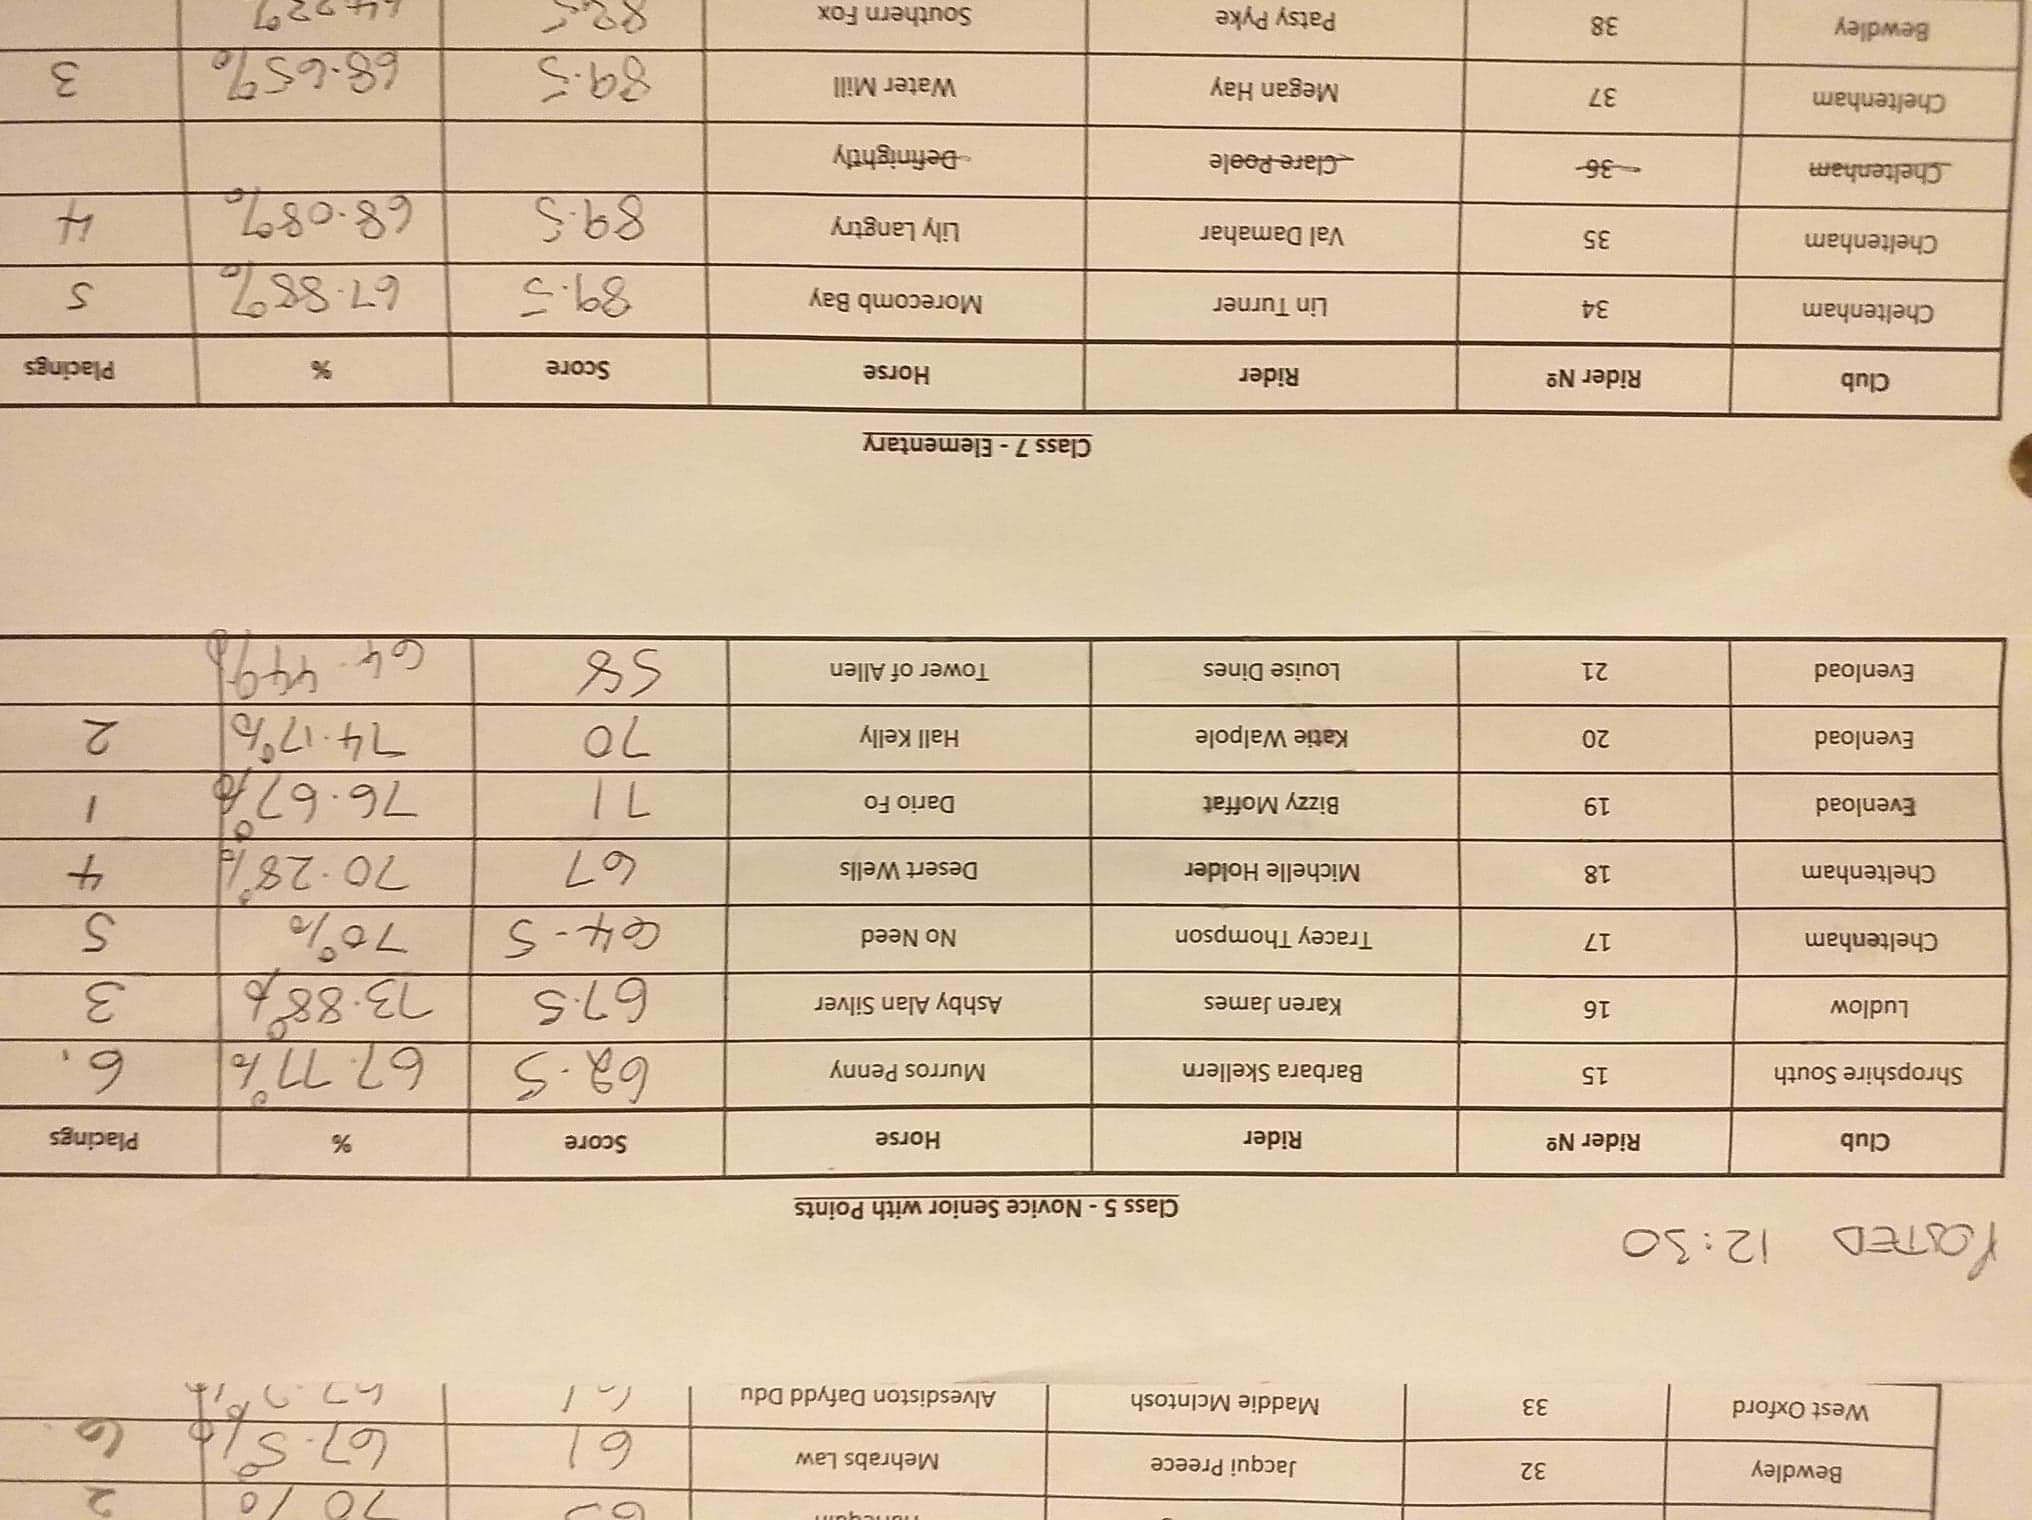 70% 2
Bewdley 32 Jacqui Preece Mehrabs Law 61 67.5% 6
West Oxford 33 Maddie McIntosh Alvesdiston Dafydd Ddu 61
POSTED 12:30
Class 5 - Novice Senior with Points
Club Rider Nº Rider Horse Score % Placings
Shropshire South 15 Barbara Skellern Murros Penny 62.5 67.77% 6.
Ludlow 16 Karen James Ashby Alan Silver 67.5 73.88% 3
Cheltenham 17 Tracey Thompson No Need 64.5 70% 5
Cheltenham 18 Michelle Holder Desert Wells 67 70.28% 4
Evenload 19 Bizzy Moffat Dario Fo 71 76.67% 1
Evenload 20 Katie Walpole Hall Kelly 70 74.17% 2
Evenload 21 Louise Dines Tower of Allen 58 64.44%
Class 7 - Elementary
Club Rider Nº Rider Horse Score % Placings
Cheltenham 34 Lin Turner Morecomb Bay 89.5 67.88% 5
Cheltenham 35 Val Damahar Lily Langtry 89.5 68.08% 4
Cheltenham 36 Clare Poole Definightly
Cheltenham 37 Megan Hay Water Mill 89.5 68.65% 3
Bewdley 38 Patsy Pyke Southern Fox